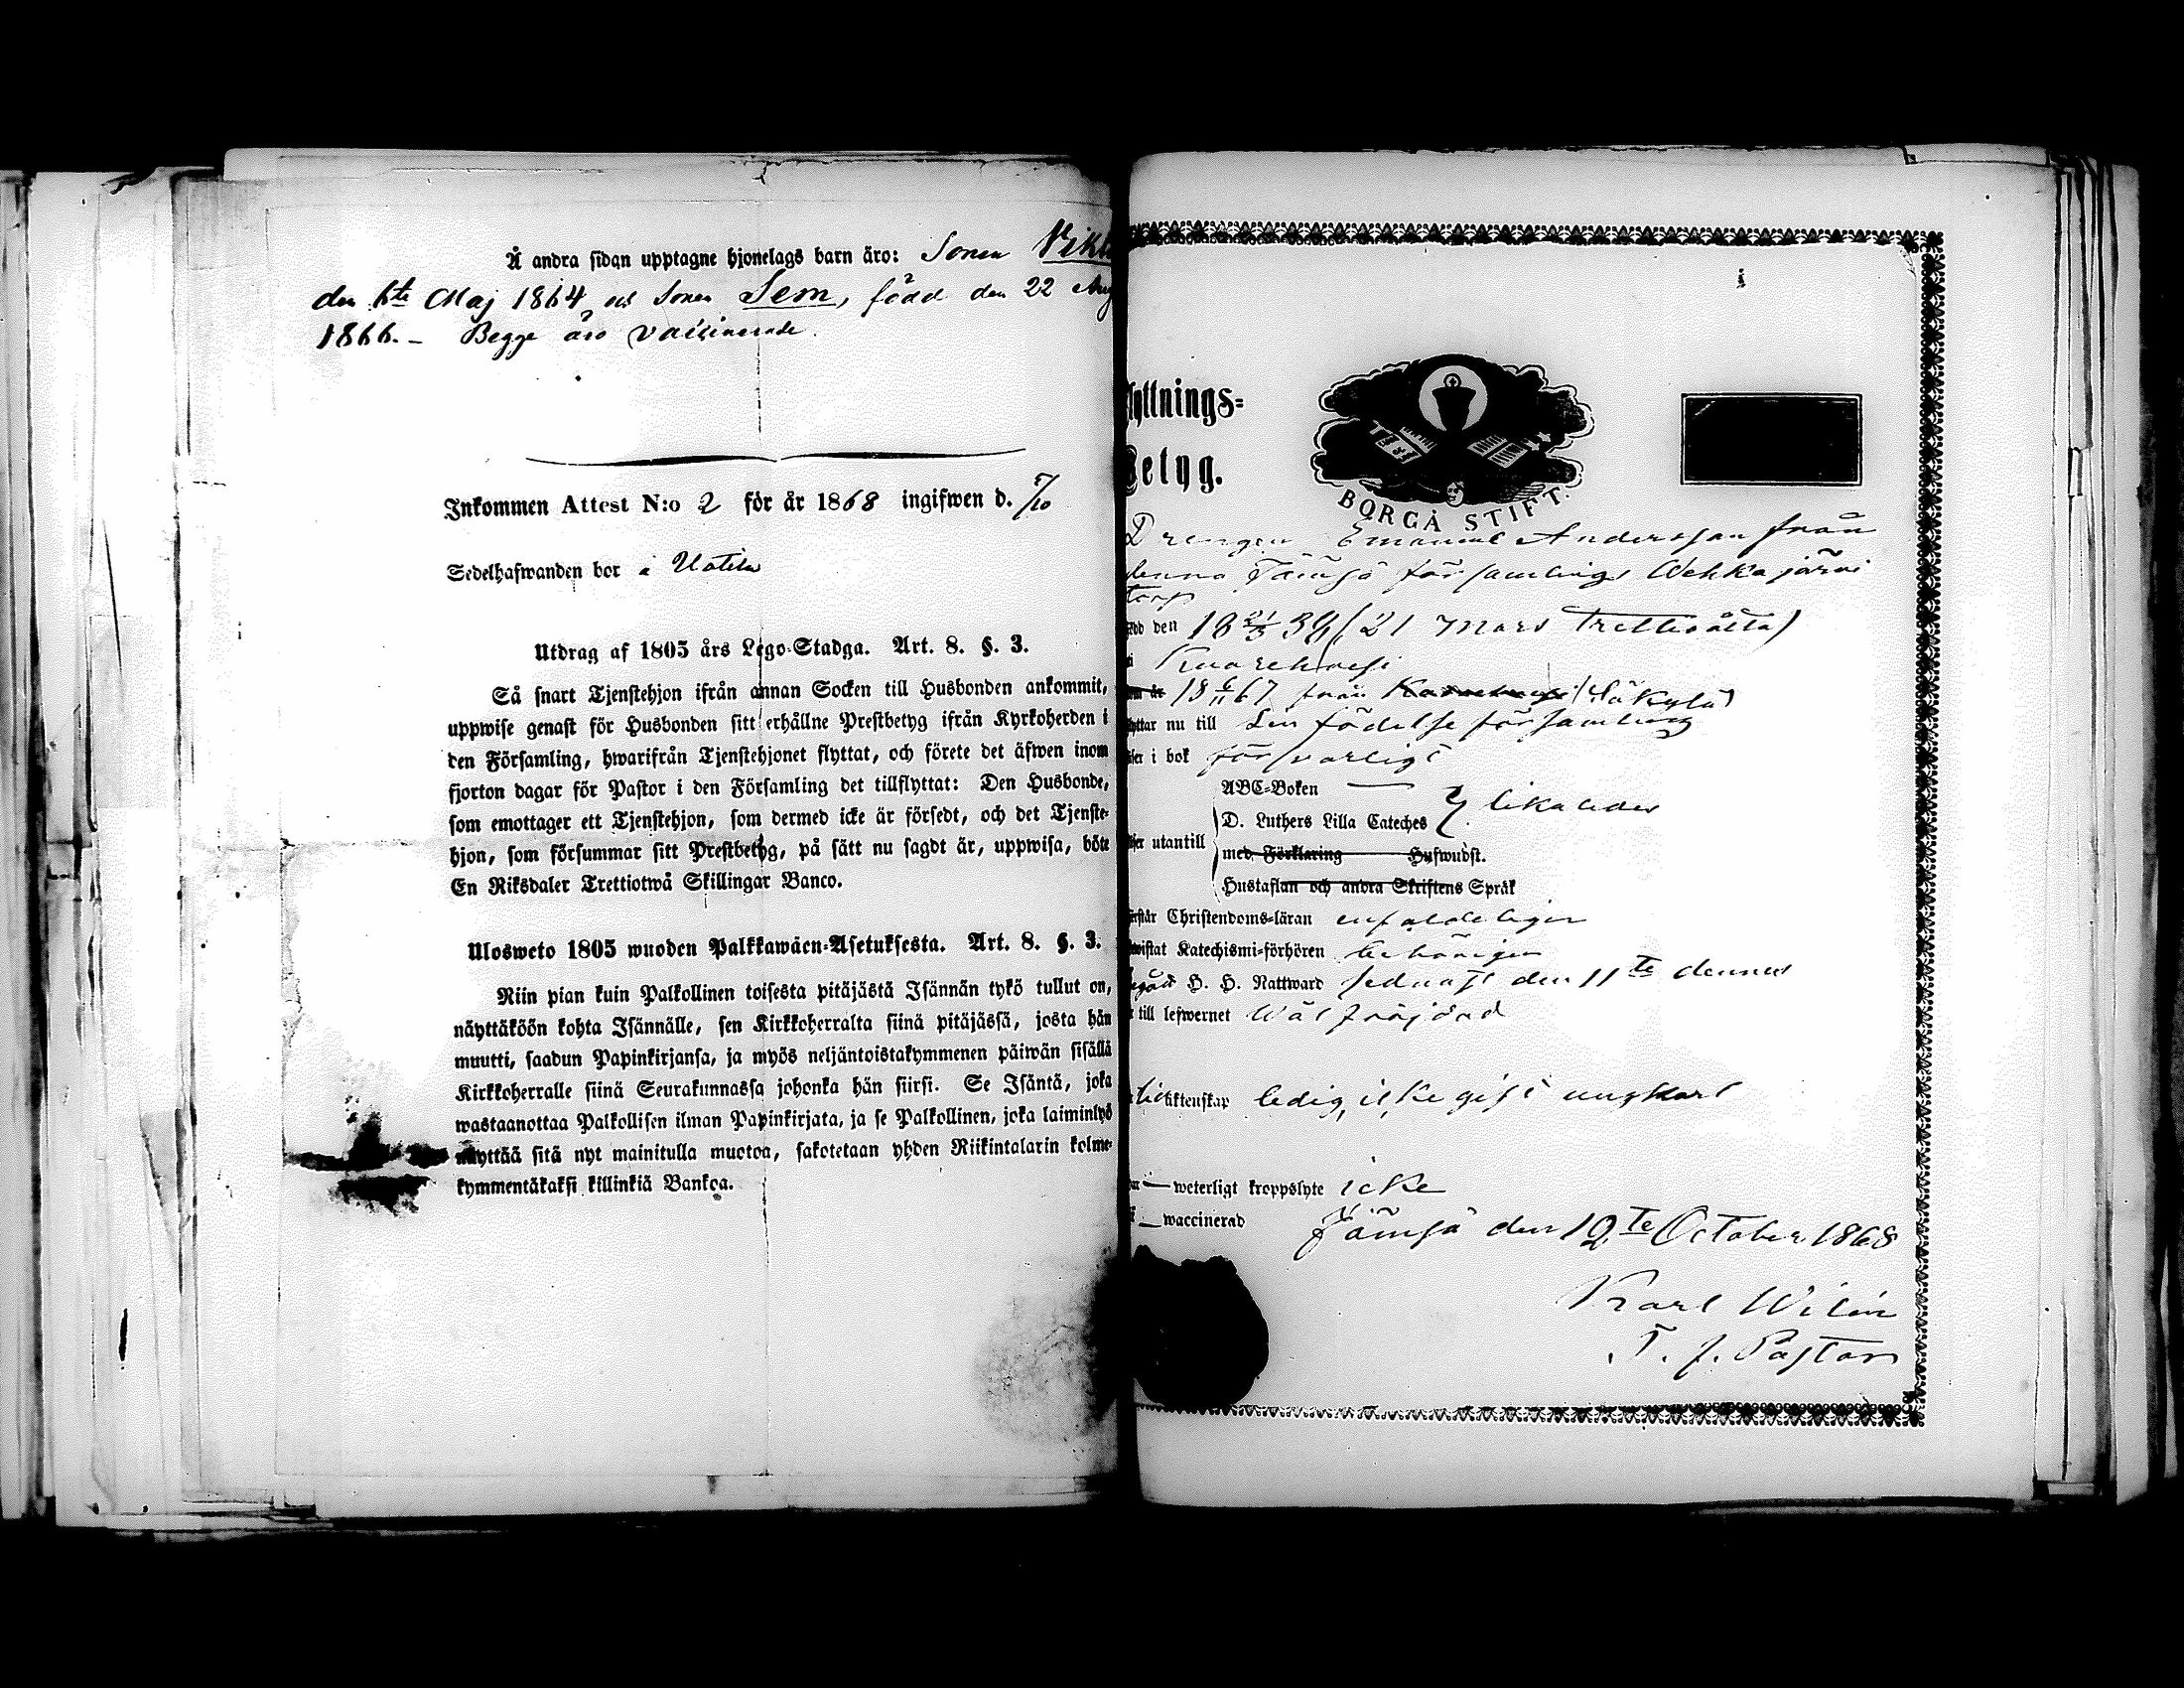 Å andra sidan upptagne hjonelags barn äro: Sonen Vikt
den 6te Maj 1864 och Sonen Sem, född den 22 Aug
1866. – Begge äro vaccinerade.
Inkommen Attest N:o 2 för år 1868 ingifwen d. 5/10
Sedelhafwanden bor å Uotila
Utdrag af 1805 års Lego-Stadga. Art. 8. §. 3.
Så snart Tjenstehjon ifrån annan Socken till Husbonden ankommit,
uppwise genast för Husbonden sitt erhållne Prestbetyg ifrån Kyrkoherden i
den Församling, hwarifrån Tjenstehjonet flyttat, och förete det äfwen inom
fjorton dagar för Pastor i den Församling det tillflyttat: Den Husbonde,
som emottager ett Tjenstehjon, som dermed icke är försedt, och det Tjenste-
hjon, som försummar sitt Prestbetyg, på sätt nu sagdt är, uppwisa, böte
En Riksdaler Trettiotwå Skillingar Banco.
Ulosweto 1805 wuoden Palkkawäen-Asetuksesta. Art. 8. §. 3.
Niin pian kuin Palkollinen toisesta pitäjästä Isännän tykö tullut on,
näyttäköön kohta Isännälle, sen Kirkkoherralta siinä pitäjässä, josta hän
muutti, saadun Papinkirjansa, ja myös neljäntoistakymmenen päiwän sisällä
Kirkkoherralle siinä Seurakunnassa johonka hän siirsi. Se Isäntä, joka
wastaanottaa Palkollisen ilman Papinkirjata, ja se Palkollinen, joka laiminlyö
näyttää sitä nyt mainitulla muotoa, sakotetaan yhden Riikintalarin kolme-
kymmentäkaksi killinkiä Bankoa.
lyttnings-
Betyg.
BORGÅ STIFT.
Drengen Emanuel Andersson från
denna Jämsä församlings Wehkajärvi
torp
född den 18 21/3 38 (21 Mars Trettioåtta)
i Kuorehvesi
18 6/11 67 från (Säkylä)
flyttar nu till Sin födelse församling
läser i bok försvarligt
ABC-Boken —
D. Luthers Lilla Cateches } likaledes
läser utantill
med Förklaring Hufwudst.
Hustaflan och andra Skriftens Språk
förstår Christendoms-läran enfaldeligen
bewistat Katechismi-förhören behörigen
begått H. H. Nattward sednast den 11te dennes
till lefwernet Wälfräjdad
äktenskap ledig, icke gift ungkarl
— weterligt kroppslyte icke
— waccinerad
Jämsä den 12te October 1868
Karl Wilén
T. f. Pastor